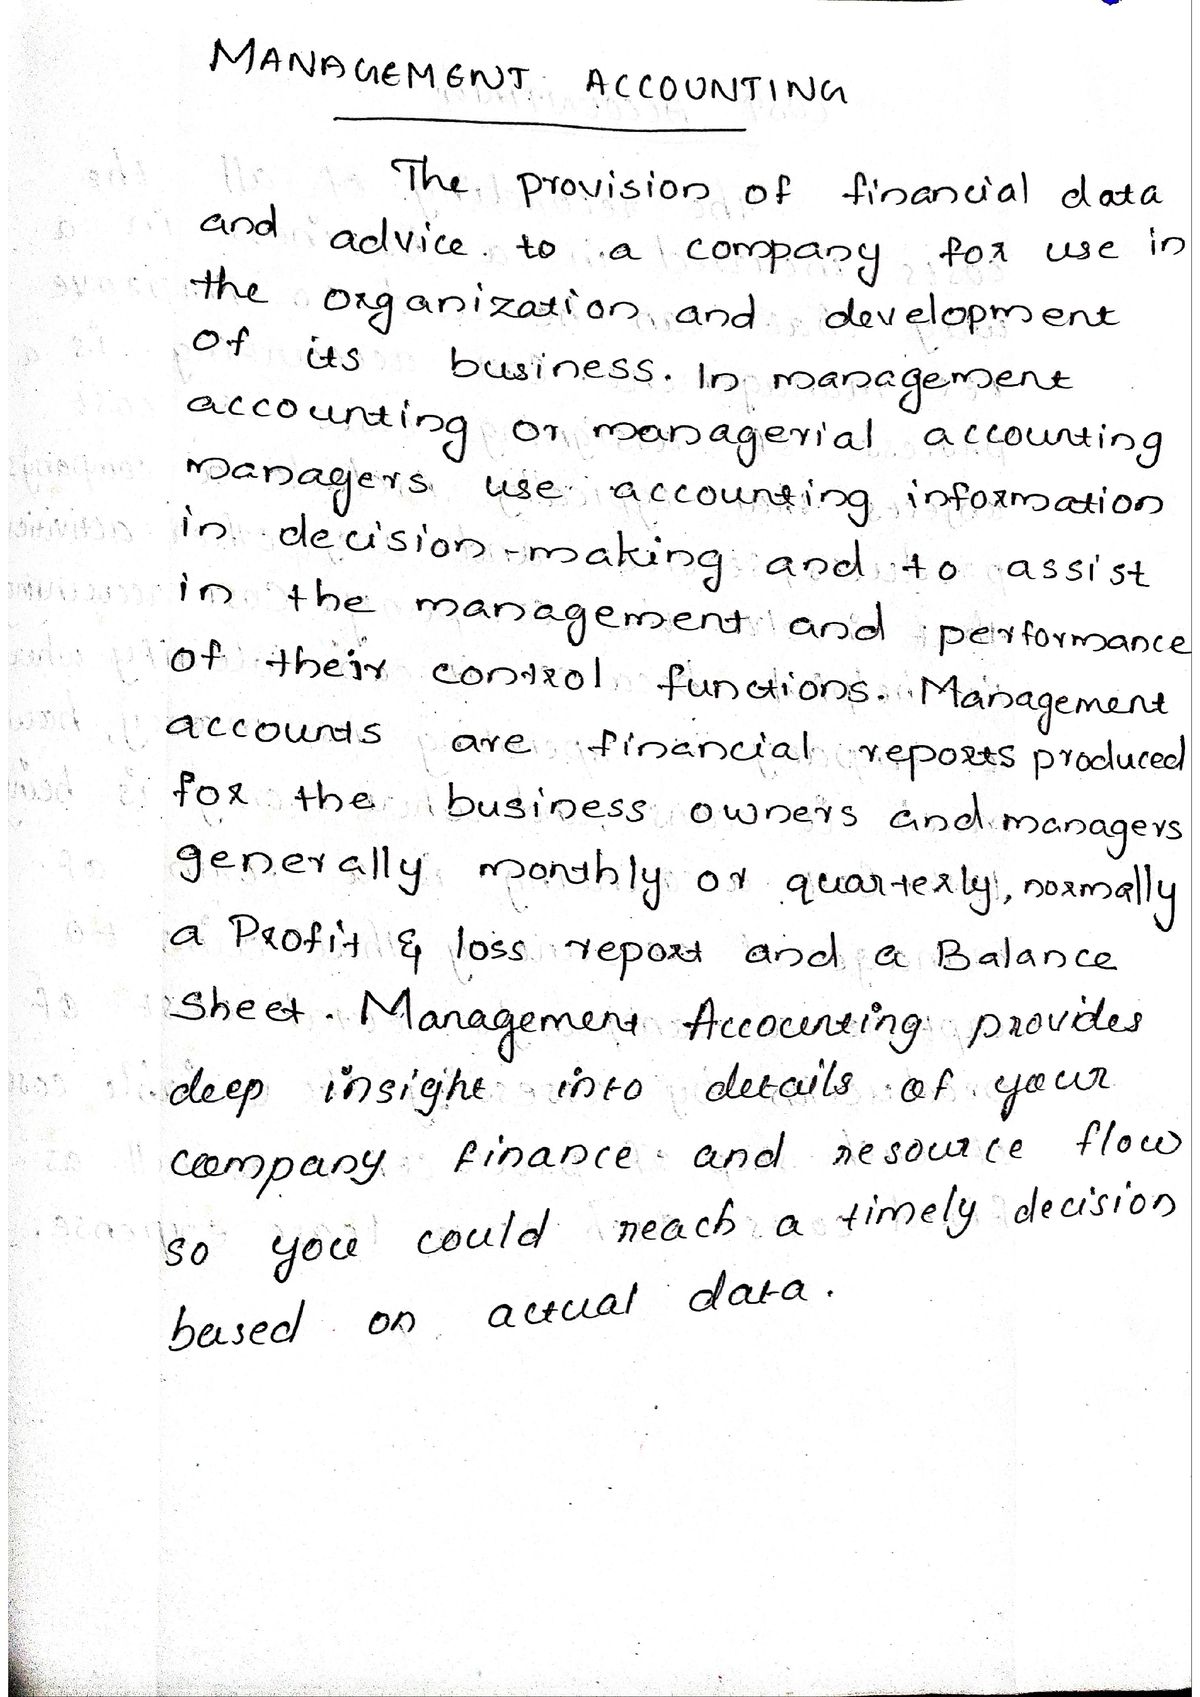 MANAGEMENT ACCOUNTING
The provision of financial data
and advice to a company for use in
the organization and development
of its business. In management
accounting or managerial accounting
managers use accounting information
in decision-making and to assist
in the management and performance
of their control functions. Management
accounts are financial reports produced
for the business owners and managers
generally monthly or quarterly, normally
a Profit & loss report and a Balance
Sheet. Management Accounting provides
deep insight into details of your
company finance and resource flow
so you could reach a timely decision
based on actual data.